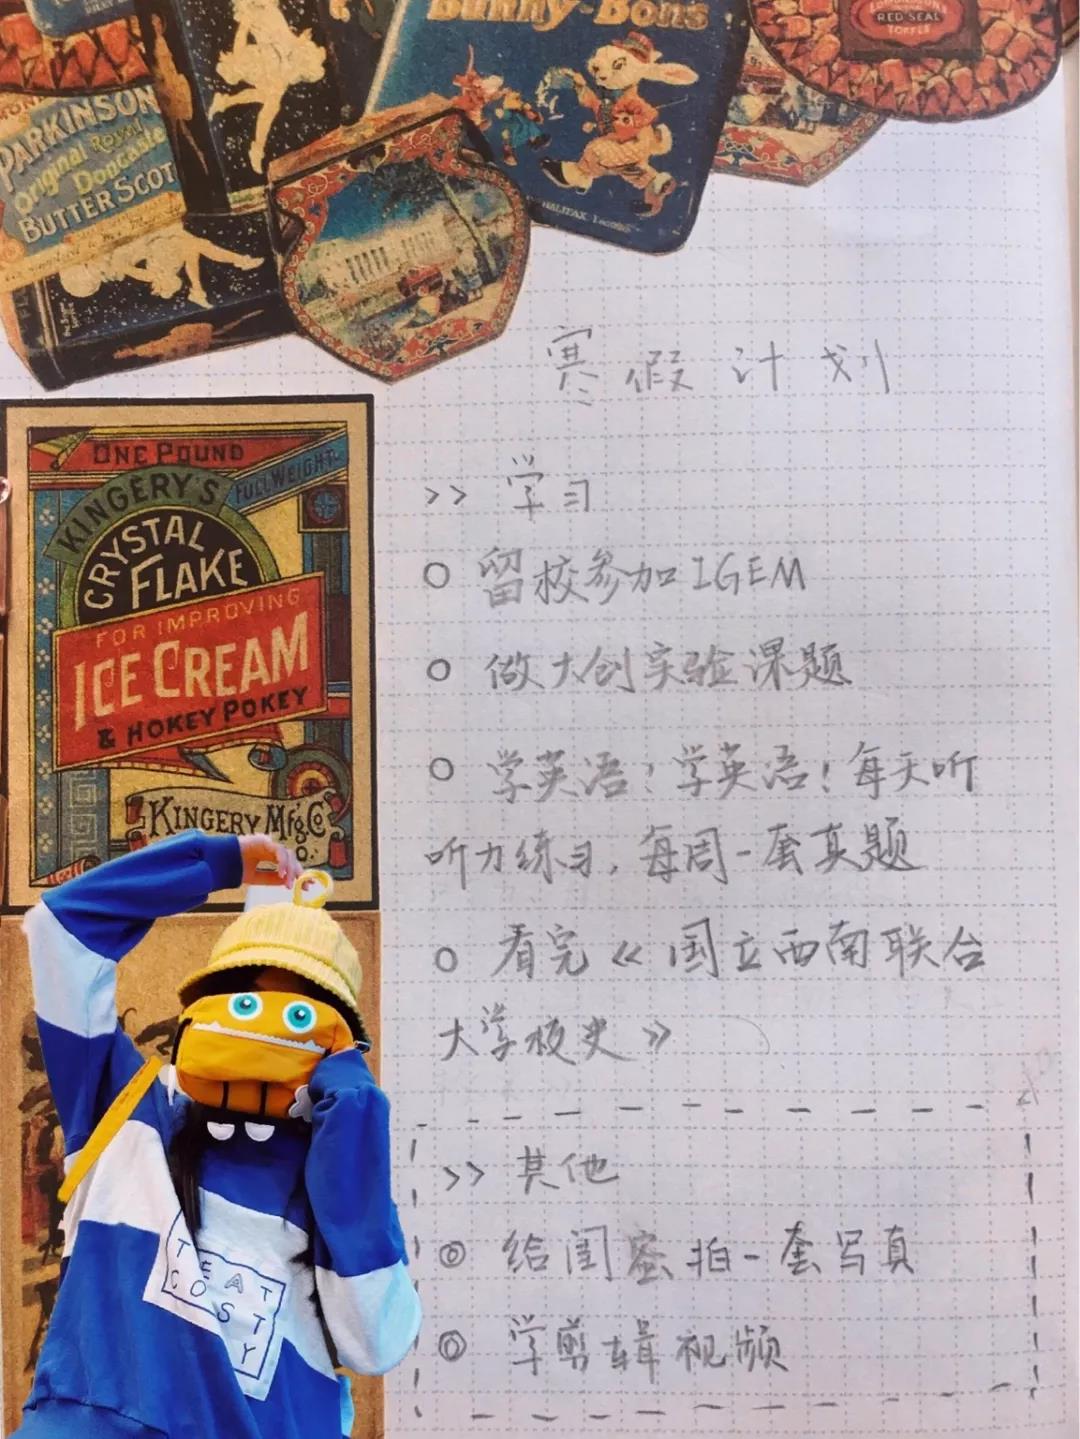 Bunny-Bons
RED SEAL
TOFFEE
PARKINSON
Original Royal
Doncaster
BUTTER SCOT
HALIFAX
寒假计划
ONE POUND
FULL WEIGHT
KINGERY'S
CRYSTAL
FLAKE
FOR IMPROVING
ICE CREAM
& HOKEY POKEY
KINGERY Mfg Co
>> 学习
○ 留校参加IGEM
○ 做大创实验课题
○ 学英语！学英语！每天听
听力练习，每周一套真题
○ 看完《国立西南联合
大学校史》
>> 其他
◎ 给闺蜜拍一套写真
◎ 学剪辑视频
TEAT
COST
TY